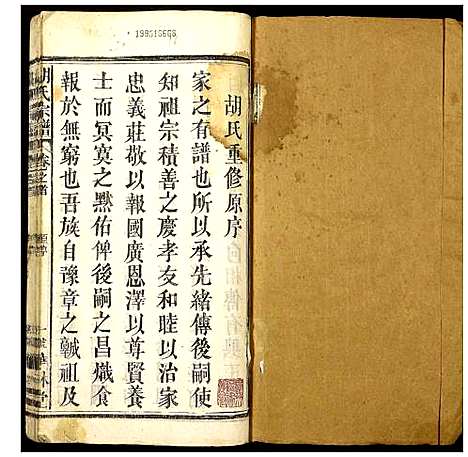 199515666
胡氏重修原序
家之有譜也所以承先緒傳後嗣使
知祖宗積善之慶孝友和睦以治家
忠義莊敬以報國廣恩澤以尊賢養
士而冥寞之黙佑俾後嗣之昌熾食
報於無窮也吾族自豫章之虩祖及
胡氏宗譜 卷之首
華林堂